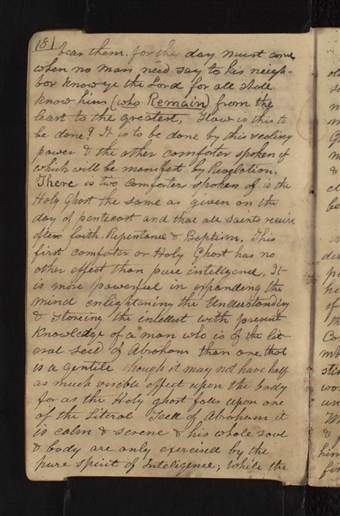 181
bear them. for the day must come
when no man need say to his neigh-
bor know ye the Lord for all shall
know him (who Remain) from the
least to the greatest, How is this to
be done? It is to be done by this sealing
power & the other comforter spoken of
which will be manifest by Revelation.
There is two comforters spoken of is the
Holy Ghost the same as given on the
day of pentecost and that all saints receive
after faith Repentance & Baptism. This
first comforter or Holy Ghost has no
other effect than pure inteligence. It
is more powerful in expanding the
mind enlightening the Understanding
& storeing the intellect with present
Knowledge of a man who is of the lit-
eral Seed of Abraham than one that
is a gentile though it may not have half
as much visible effect upon the body
for as the Holy ghost falls upon one
of the Literal Seed of Abraham it
is calm & serene & his whole soul
& body are only exercised by the
pure spirit of Inteligence; while the